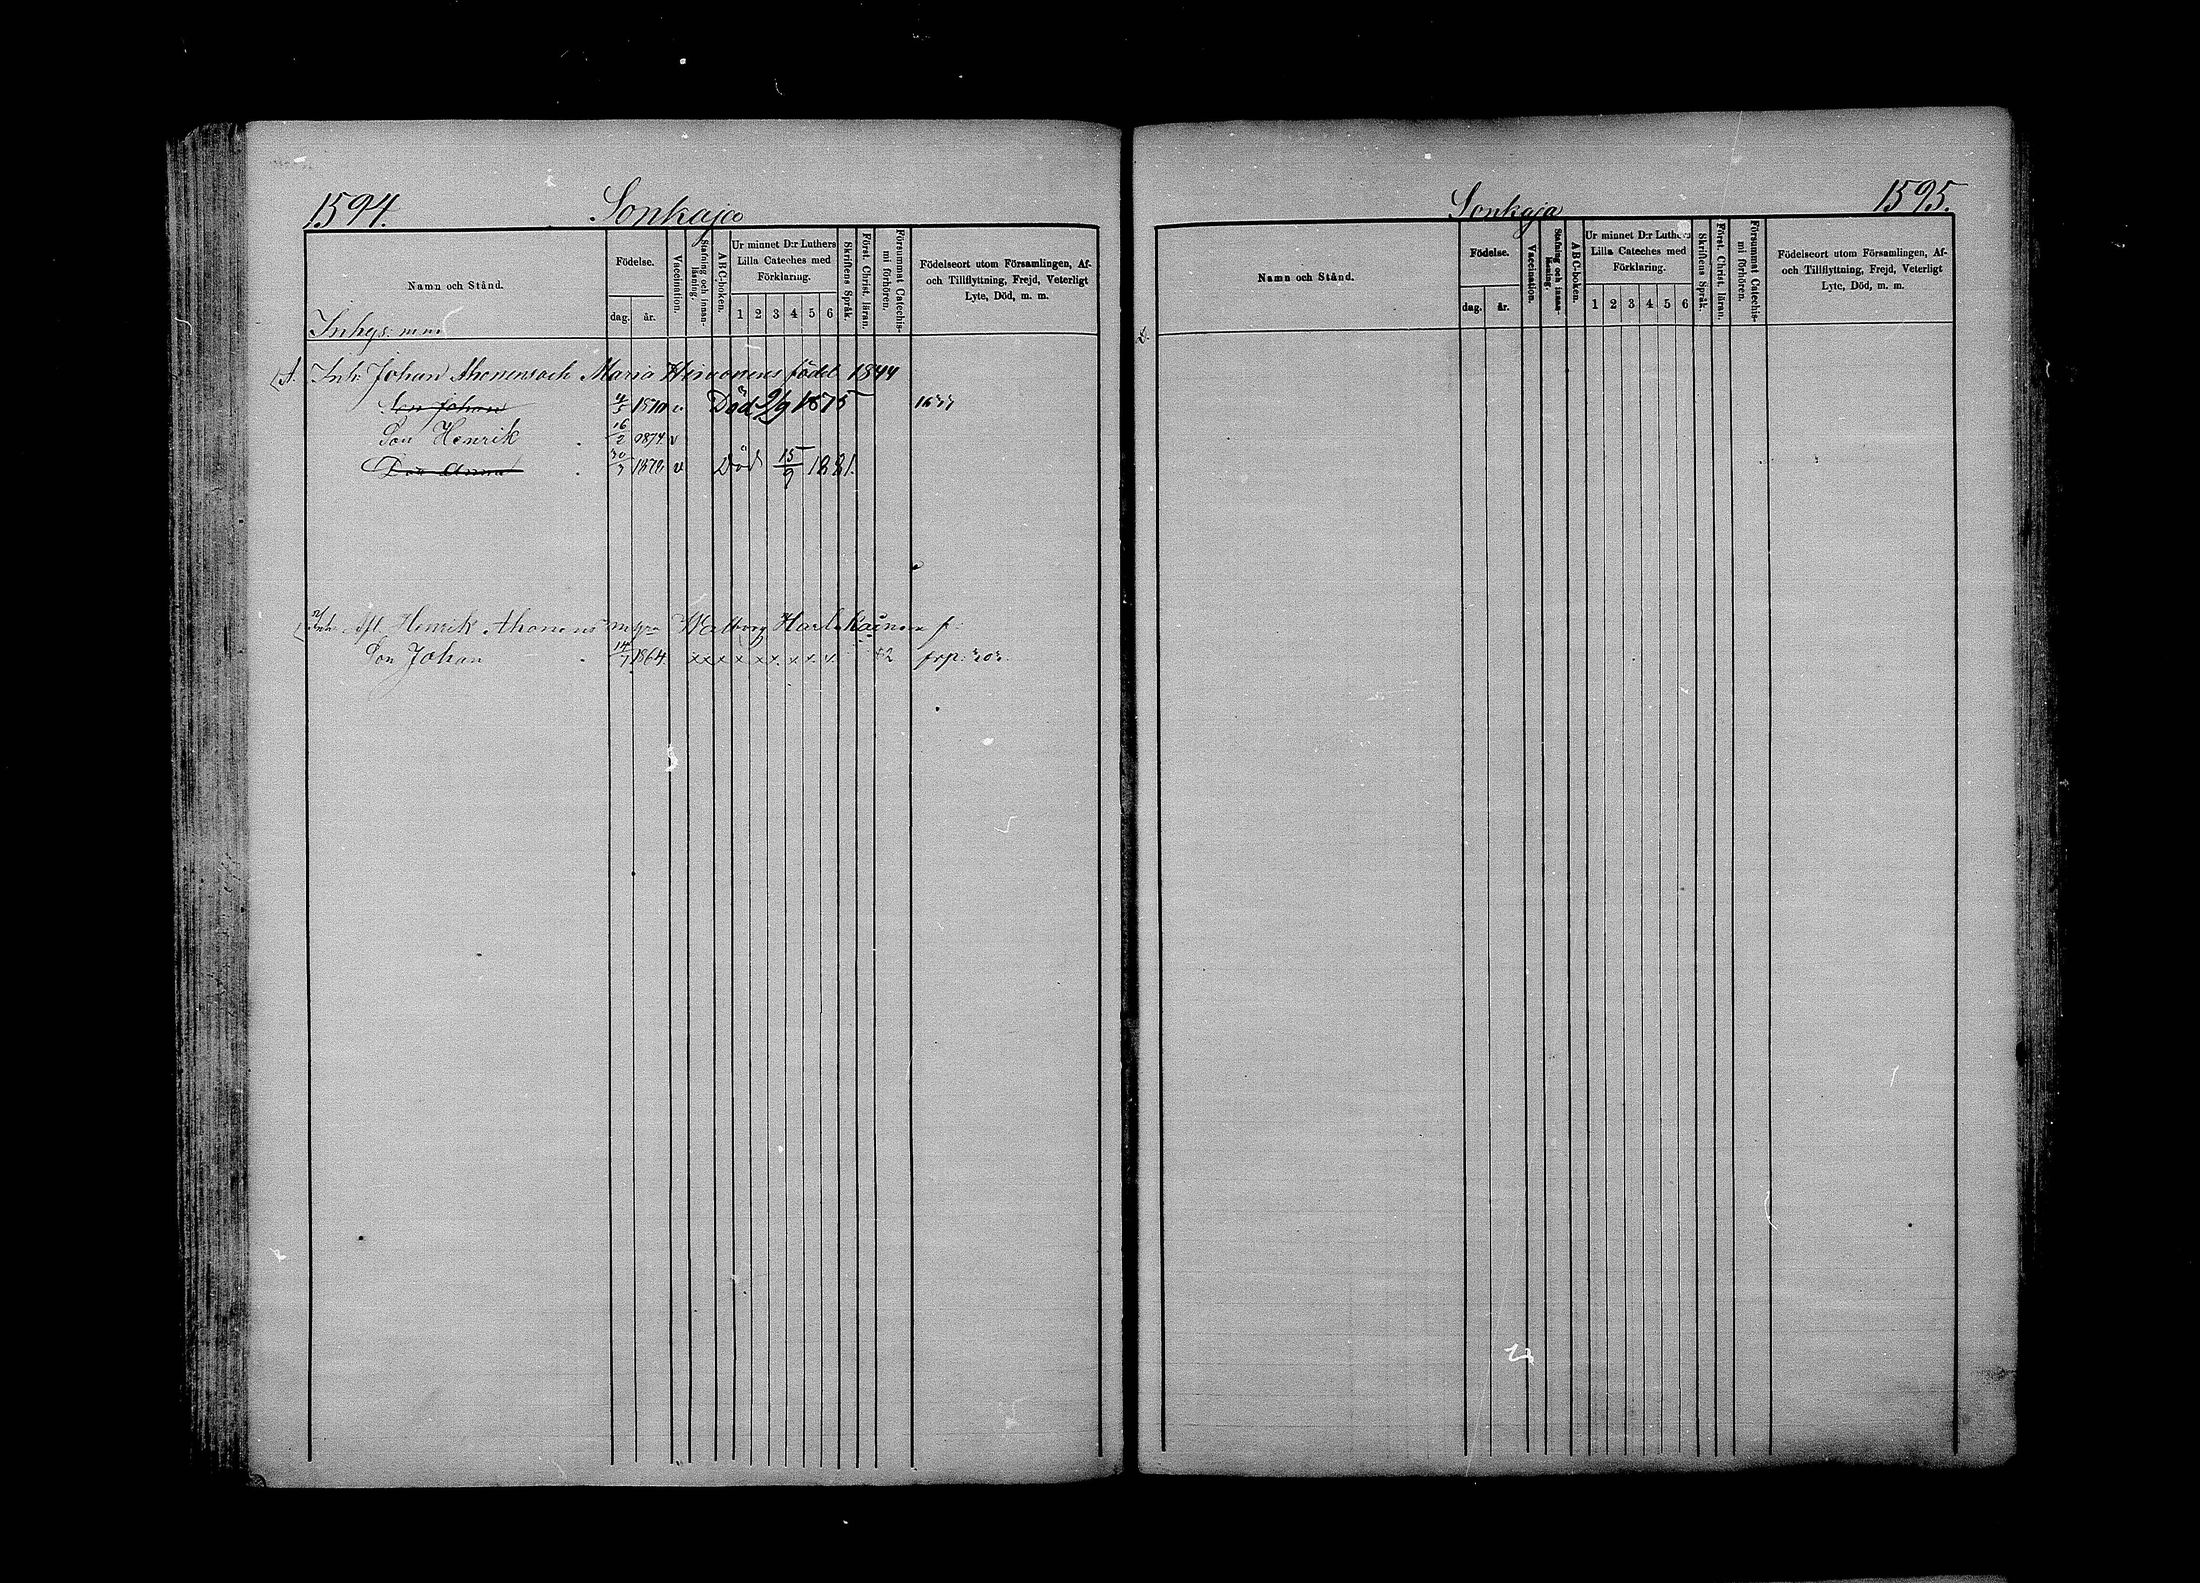 1594.
Sonkaja
Namn och Stånd.
Födelse.
dag. år.
Vaccination.
Stafning och innan-läsning.
ABC-boken.
Ur minnet D:r Luthers
Lilla Cateches med
Förklaring.
1 2 3 4 5 6
Skriftens Språk.
Först. Christ. läran.
Försummat Catechis-mi förhören.
Födelseort utom Församlingen, Af-
och Tillflyttning, Frejd, Veterligt
Lyte, Död, m. m.
Inhys: m.m.
A. Inh: Johan Ahonens och Maria Hirvonens födel 1844
Son Johan 1870 v Död 2/9 1875 1677
Son Henrik 16/2 1874 v
Dor Anna 30/7 1878 v Död 15/9 1881.
Inh: Afl Henrik Ahonens Walborg Harlakainen f:
Son Johan 14/7 1864. xxx x x x. x x. x. 2
1595.
Sonkaja
Namn och Stånd.
Födelse.
dag. år.
Vaccination.
Stafning och innan-läsning.
ABC-boken.
Ur minnet D:r Luthers
Lilla Cateches med
Förklaring.
1 2 3 4 5 6
Skriftens Språk.
Först. Christ. läran.
Försummat Catechis-mi förhören.
Födelseort utom Församlingen, Af-
och Tillflyttning, Frejd, Veterligt
Lyte, Död, m. m.